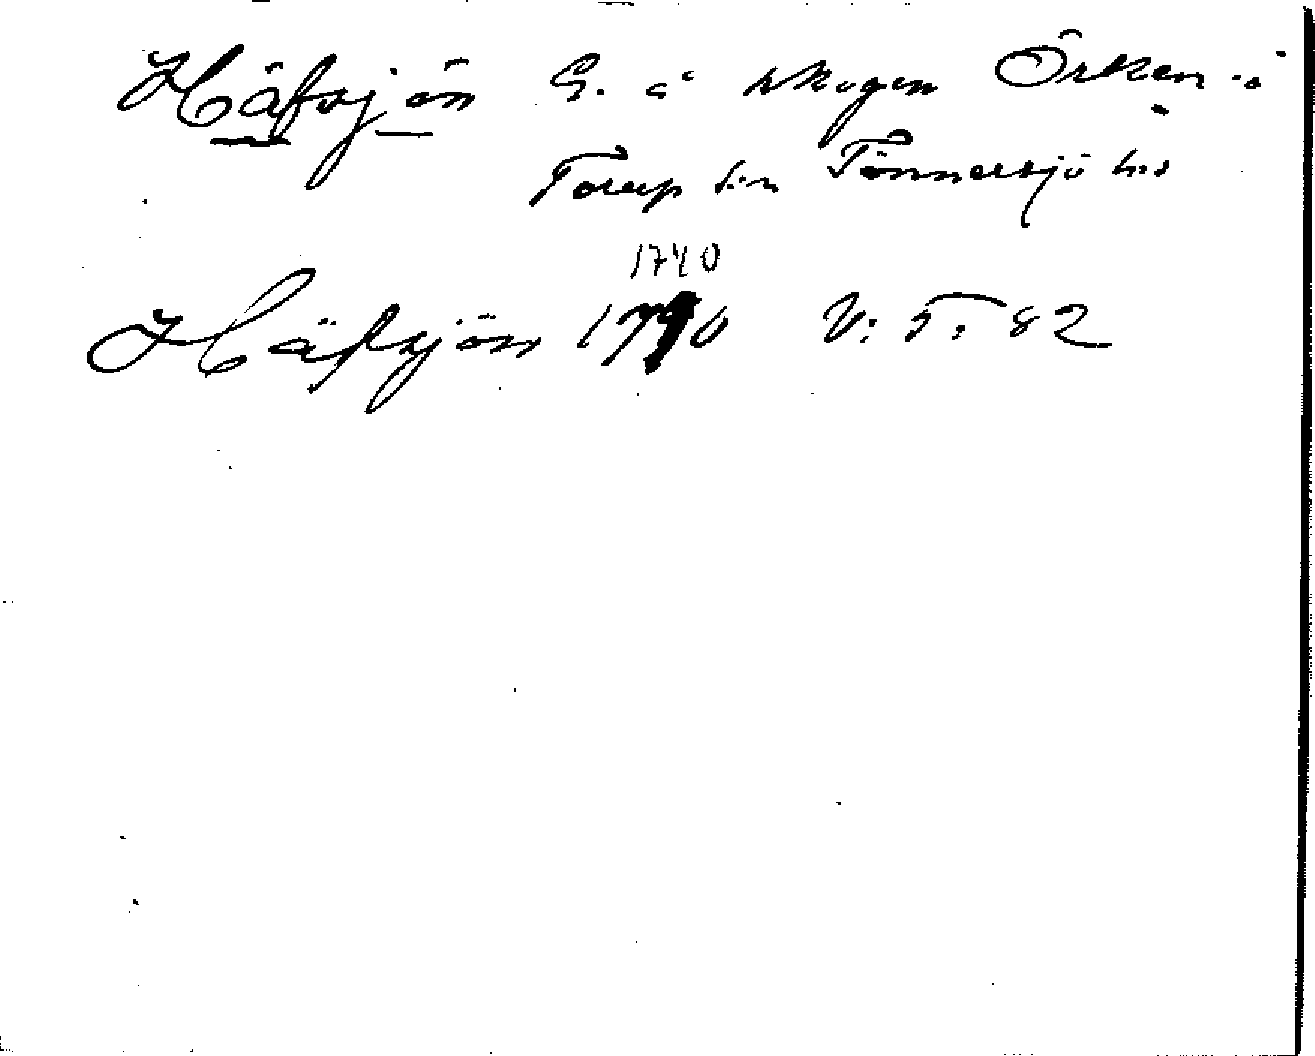 Häfsjön G. å skogen Örken å
Torup sn Tönnersjö hd
1740
Häfsjön 1740 V: 5: 82